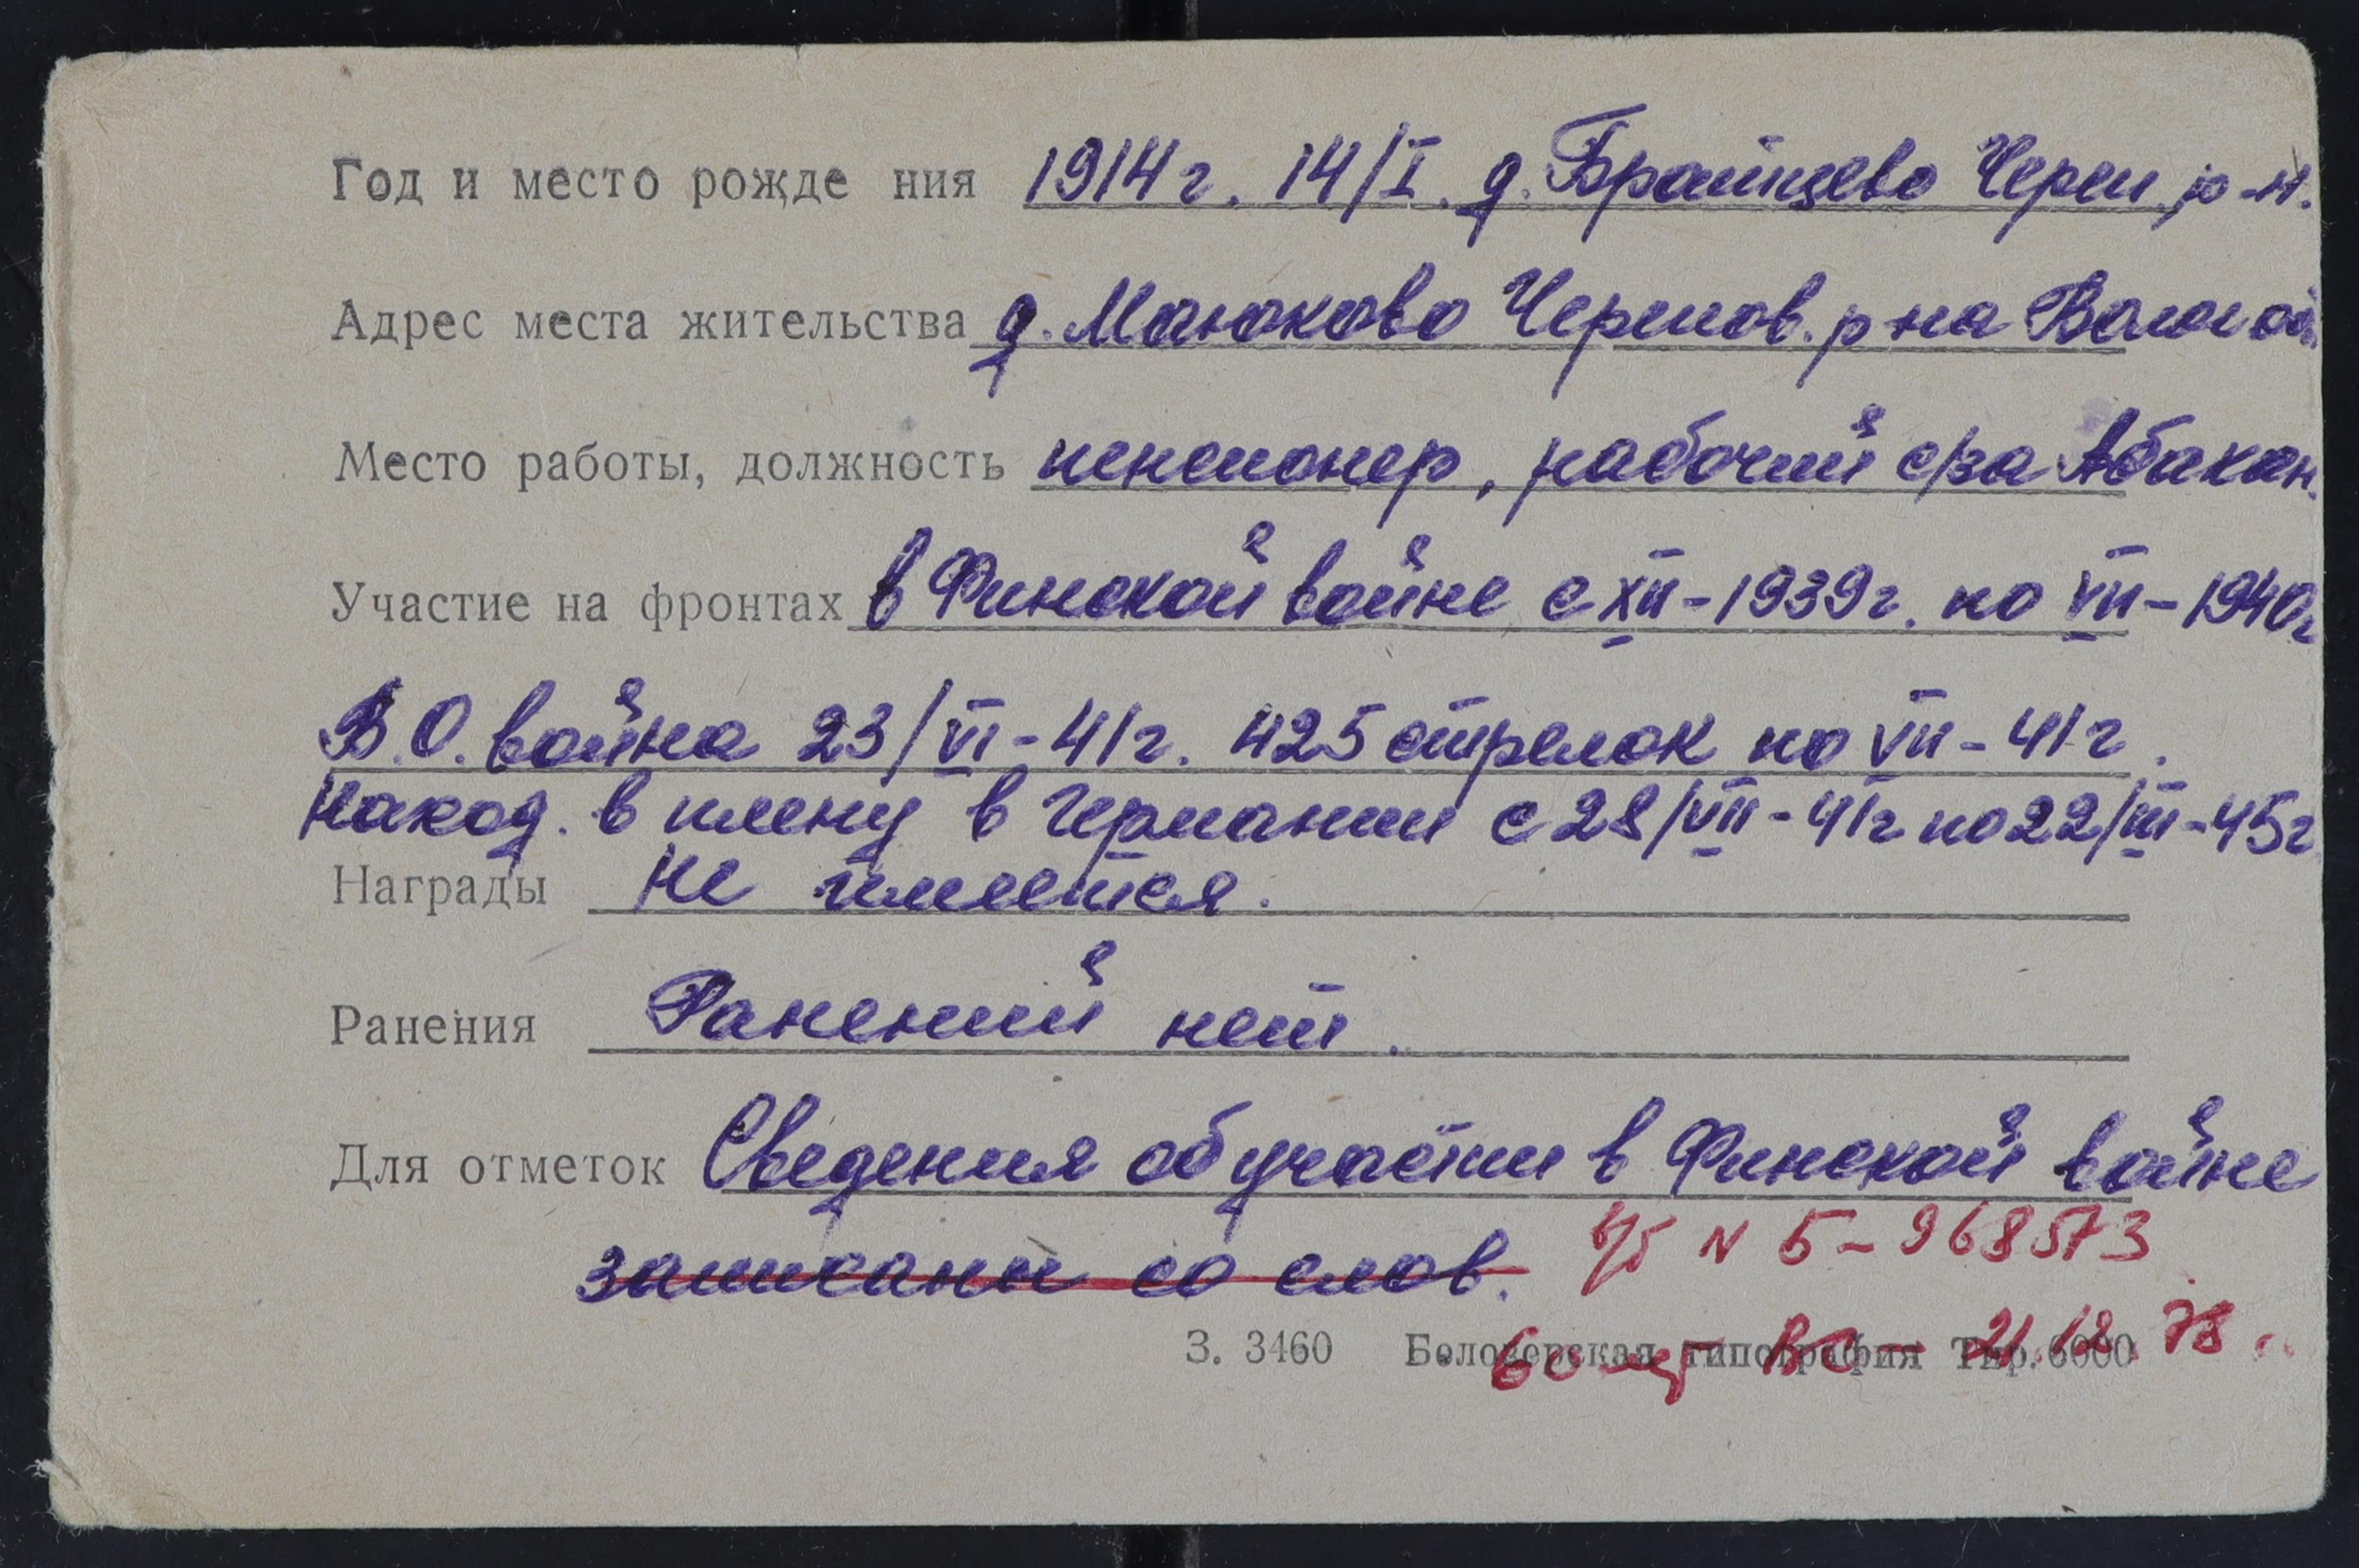 Год и место рожде ния 1914г. 14/I. д. Брайнцево Череп. р-н.
Адрес места жительства д. Манюково Черепов. р-на Волог об.
Место работы, должность пенсионер, рабочий с/за Абакан.
Участие на фронтах в Финской войне с XII-1939г. по VII-1940г
В.О. война 23/VI-41г. 425 стрелок по VII-41г.
наход. в плену в Германии с 28/VII-41г по 22/III-45г
Награды не имеется.
Ранения Ранений нет.
Для отметок Сведения об участии в Финской войне
записаны со слов. в/б N Б-968573
З. 3460 Белозерская типография Тир. 6000 21.12.78.